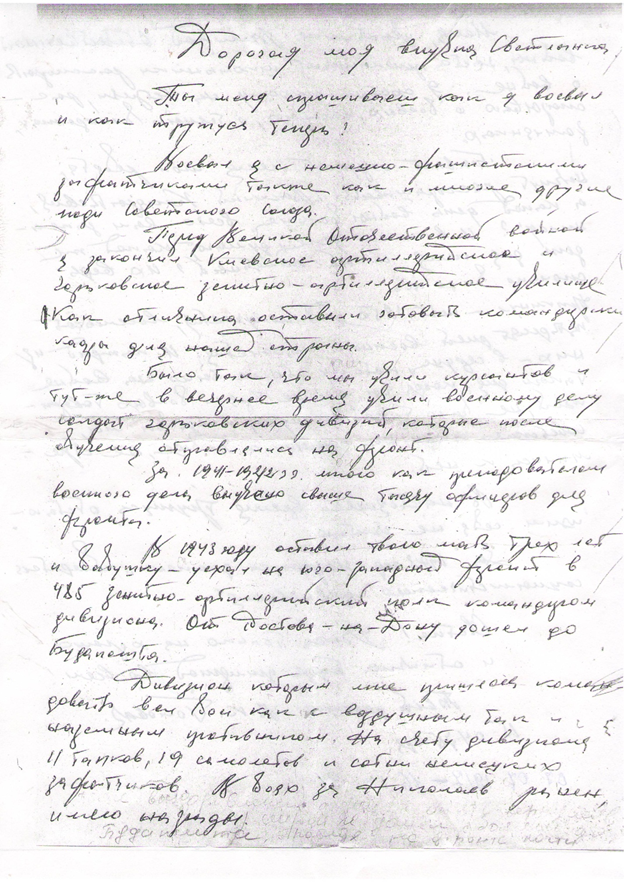 Дорогая моя внучка Светланка
Ты меня спрашиваешь как я воевал
и как тружусь теперь?
Воевал я с немецко-фашистскими
захватчиками также как и многие другие
люди Советского союза.
Перед Великой Отечественной войной
я закончил Киевское артиллерийское и
Горьковское зенитно-артиллерийское училище
Как отличника оставили готовить командирские
кадры для нашей страны.
Было так, что мы учили курсантов и
тут-же в вечернее время учили военному делу
солдат горьковских дивизий, которые после
обучения отправлялись на фронт.
За 1941-1942 гг. мною как преподавателем
военного дела выучено свыше тысячу офицеров для
фронта.
В 1943 году оставил твою мать трех лет
и бабушку - уехал на юго-западный фронт в
485 зенитно-артиллерийский полк командиром
дивизиона. От Ростова-на-Дону дошел до
Будапешта.
Дивизион которым мне пришлось коман
довать вел бои как к воздушным так и
наземным противником. На счету дивизиона
11 танков, 19 самолетов и сотни немецких
захватчиков. В боях за Николаев ранен,
имею награды.
Будапешта,